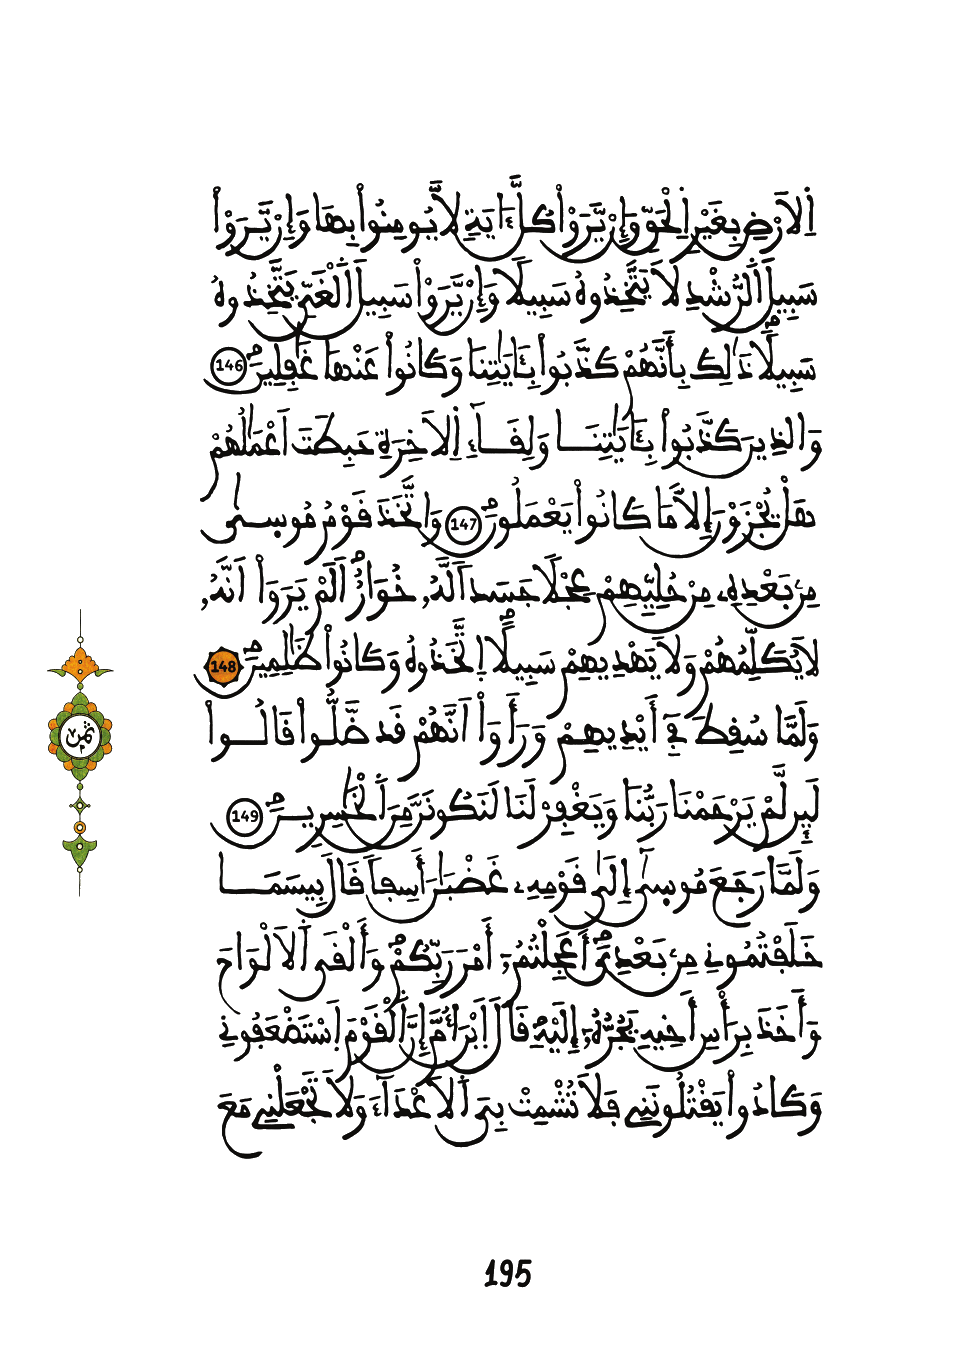 اَ۬لَارْضِ بِغَيْرِ اِ۬لْحَقِّ وَإِنْ يَّرَوْاْ كُلَّ ءَايَةٖ لَّا يُومِنُواْ بِهَا وَإِنْ يَّرَوْاْ
سَبِيلَ اَ۬لرُّشْدِ لَا يَتَّخِذُوهُ سَبِيلاٗ وَإِنْ يَّرَوْاْ سَبِيلَ اَ۬لْغَيِّ يَتَّخِذُوهُ
سَبِيلاٗ ذَٰلِكَ بِأَنَّهُمْ كَذَّبُواْ بِـَٔايَٰتِنَا وَكَانُواْ عَنْهَا غَٰفِلِينَ 146
وَالذِينَ كَذَّبُواْ بِـَٔايَٰتِنَا وَلِقَآءِ اِ۬لَاخِرَةِ حَبِطَتَ اَعْمَٰلُهُمْ
هَلْ يُجْزَوْنَ إِلَّا مَا كَانُواْ يَعْمَلُونَ 147 وَاتَّخَذَ قَوْمُ مُوسَىٰ
مِنۢ بَعْدِهِۦ مِنْ حُلِيِّهِمْ عِجْلاٗ جَسَداٗ لَّهُۥ خُوَارٌ اَلَمْ يَرَوَاْ اَنَّهُۥ
لَا يُكَلِّمُهُمْ وَلَا يَهْدِيهِمْ سَبِيلاًۘ اِ۪تَّخَذُوهُ وَكَانُواْ ظَٰلِمِينَ 148
وَلَمَّا سُقِطَ فِےٓ أَيْدِيهِمْ وَرَأَوَاْ اَنَّهُمْ قَد ضَّلُّواْ قَالُواْ
لَئِن لَّمْ يَرْحَمْنَا رَبُّنَا وَيَغْفِرْ لَنَا لَنَكُونَنَّ مِنَ اَ۬لْخَٰسِرِينَ 149
وَلَمَّا رَجَعَ مُوسَىٰٓ إِلَىٰ قَوْمِهِۦ غَضْبَٰنَ أَسِفاٗ قَالَ بِيسَمَا
خَلَفْتُمُونِے مِنۢ بَعْدِيَ أَعَجِلْتُمُۥٓ أَمْرَ رَبِّكُمْ وَأَلْقَى اَ۬لَالْوَاحَ
وَأَخَذَ بِرَأْسِ أَخِيهِ يَجُرُّهُۥٓ إِلَيْهِ قَالَ اَ۪بْنَ أُمَّ إِنَّ اَ۬لْقَوْمَ اَ۪سْتَضْعَفُونِے
وَكَادُواْ يَقْتُلُونَنِے فَلَا تُشْمِتْ بِيَ اَ۬لَاعْدَآءَ وَلَا تَجْعَلْنِے مَعَ
ثمن
195